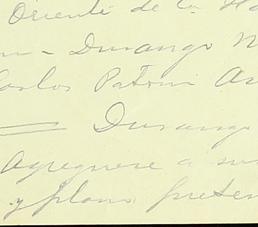 Oriente de la Ha
on - Durango M
Carlos Patoni Ar
= Durango
Agreguese a su
y plano presen